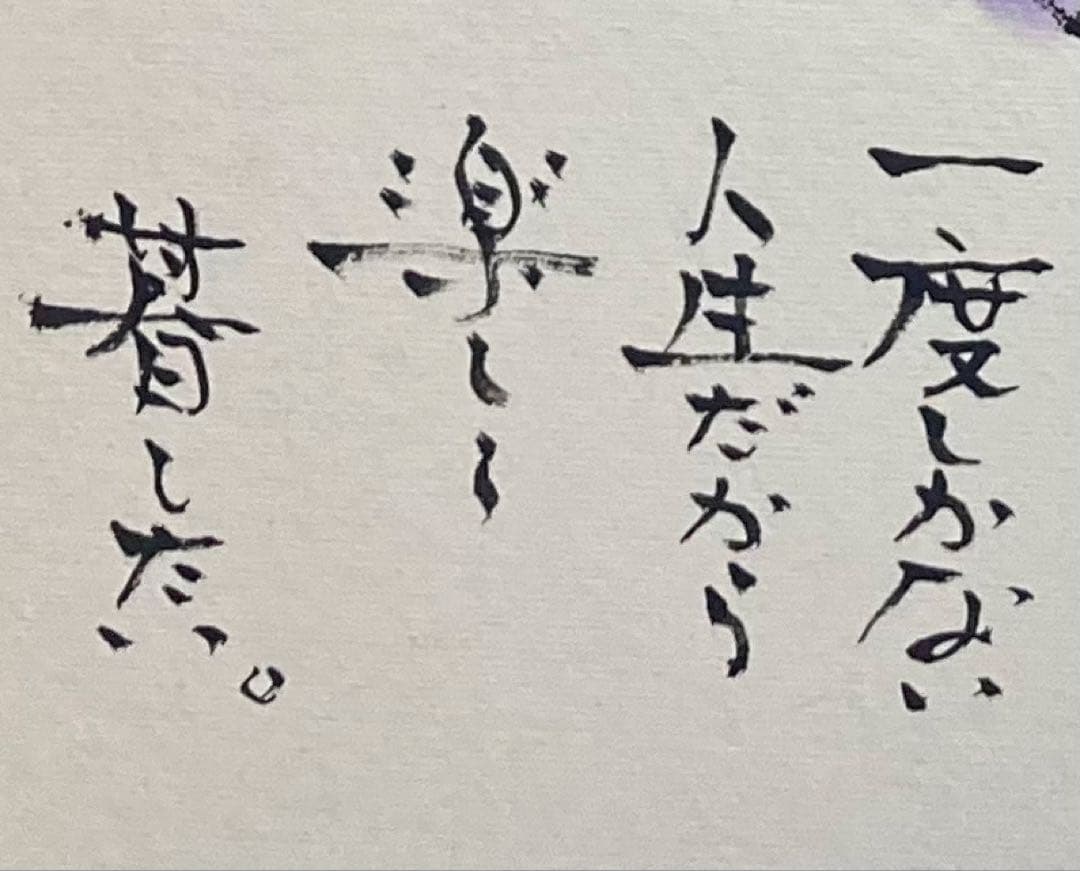 一度しかない
人生だから
楽しく
暮したい。